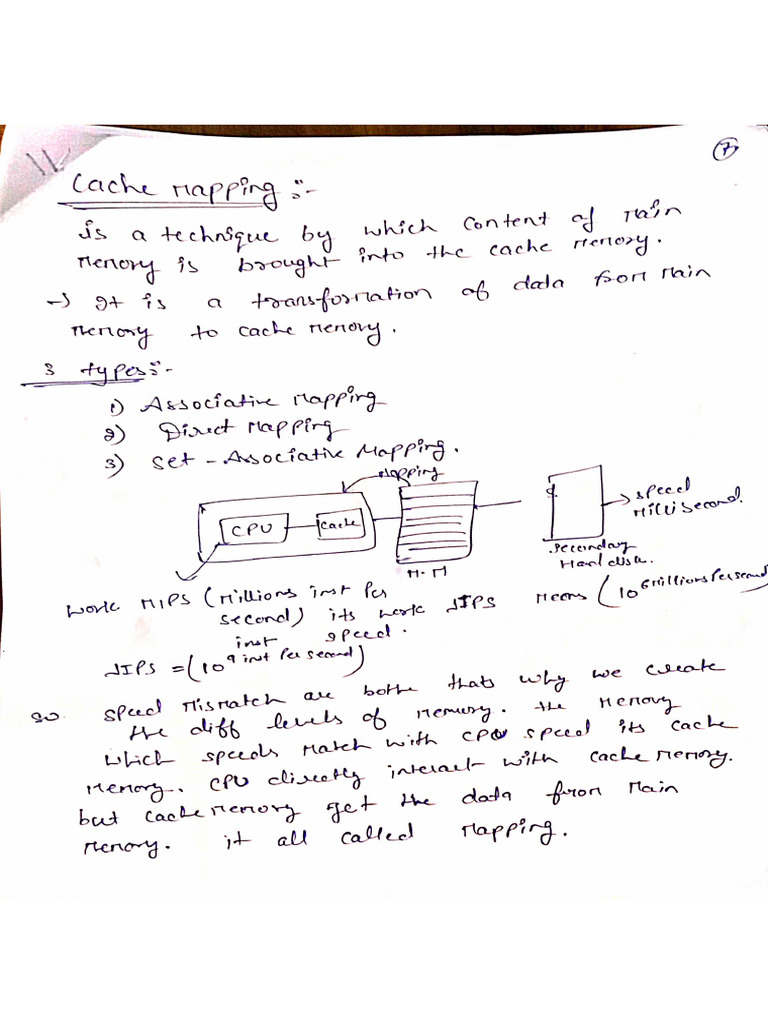 7
Cache Mapping :-
is a technique by which content of Main
Memory is brought into the cache Memory.
→ It is a transformation of data from Main
Memory to cache Memory.
3 types :-
1) Associative Mapping
2) Direct Mapping
3) Set - Associative Mapping.
Mapping
CPU
Cache
M.M
Secondary
Hard disk.
speed
Milli second.
work MIPS (Millions inst Per
second) its work NIPS Means (10^6 millions Per second)
inst speed.
NIPS = (10^9 inst Per second)
so speed Mismatch are bothe thats why we create
the diff levels of memory. the Memory
which speeds Match with CPU speed its cache
Memory. CPU directly interact with cache Memory.
but cache Memory get the data from Main
Memory. it all called Mapping.